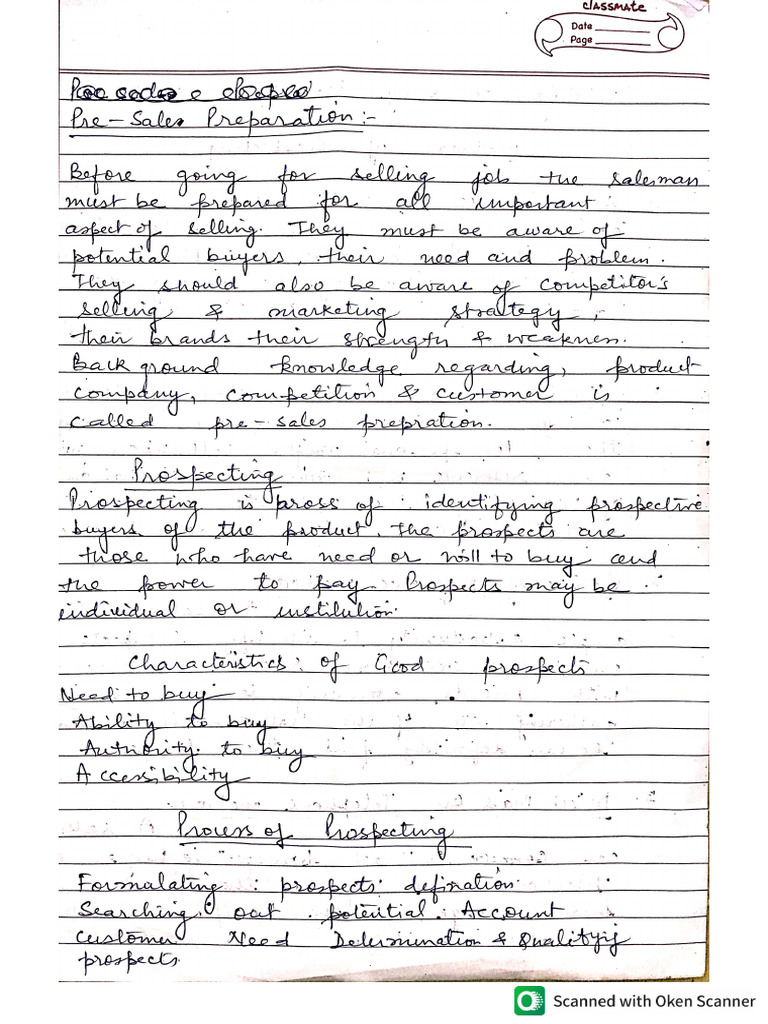 classmate
Date
Page
Pre-Sales Preparation:-
Before going for selling job the salesman
must be prepared for all important
aspect of selling. They must be aware of
potential buyers, their need and problem.
They should also be aware of Competitor's
selling & marketing strategy,
their brands their strength & weakness.
Back ground knowledge regarding, product
company, competition & customer is
called pre-sales prepration.
Prospecting
Prospecting is pross of identifying prospective
buyers of the product. The prospects are
those who have need or will to buy and
the power to pay. Prospects may be
individual or institution.
Characteristics of Good prospects
Need to buy
Ability to buy
Authority to buy
Accessibility
Process of Prospecting
Formalating prospects defination.
Searching out potential Account
customer Need Determination & Qualityig
prospects.
Scanned with Oken Scanner